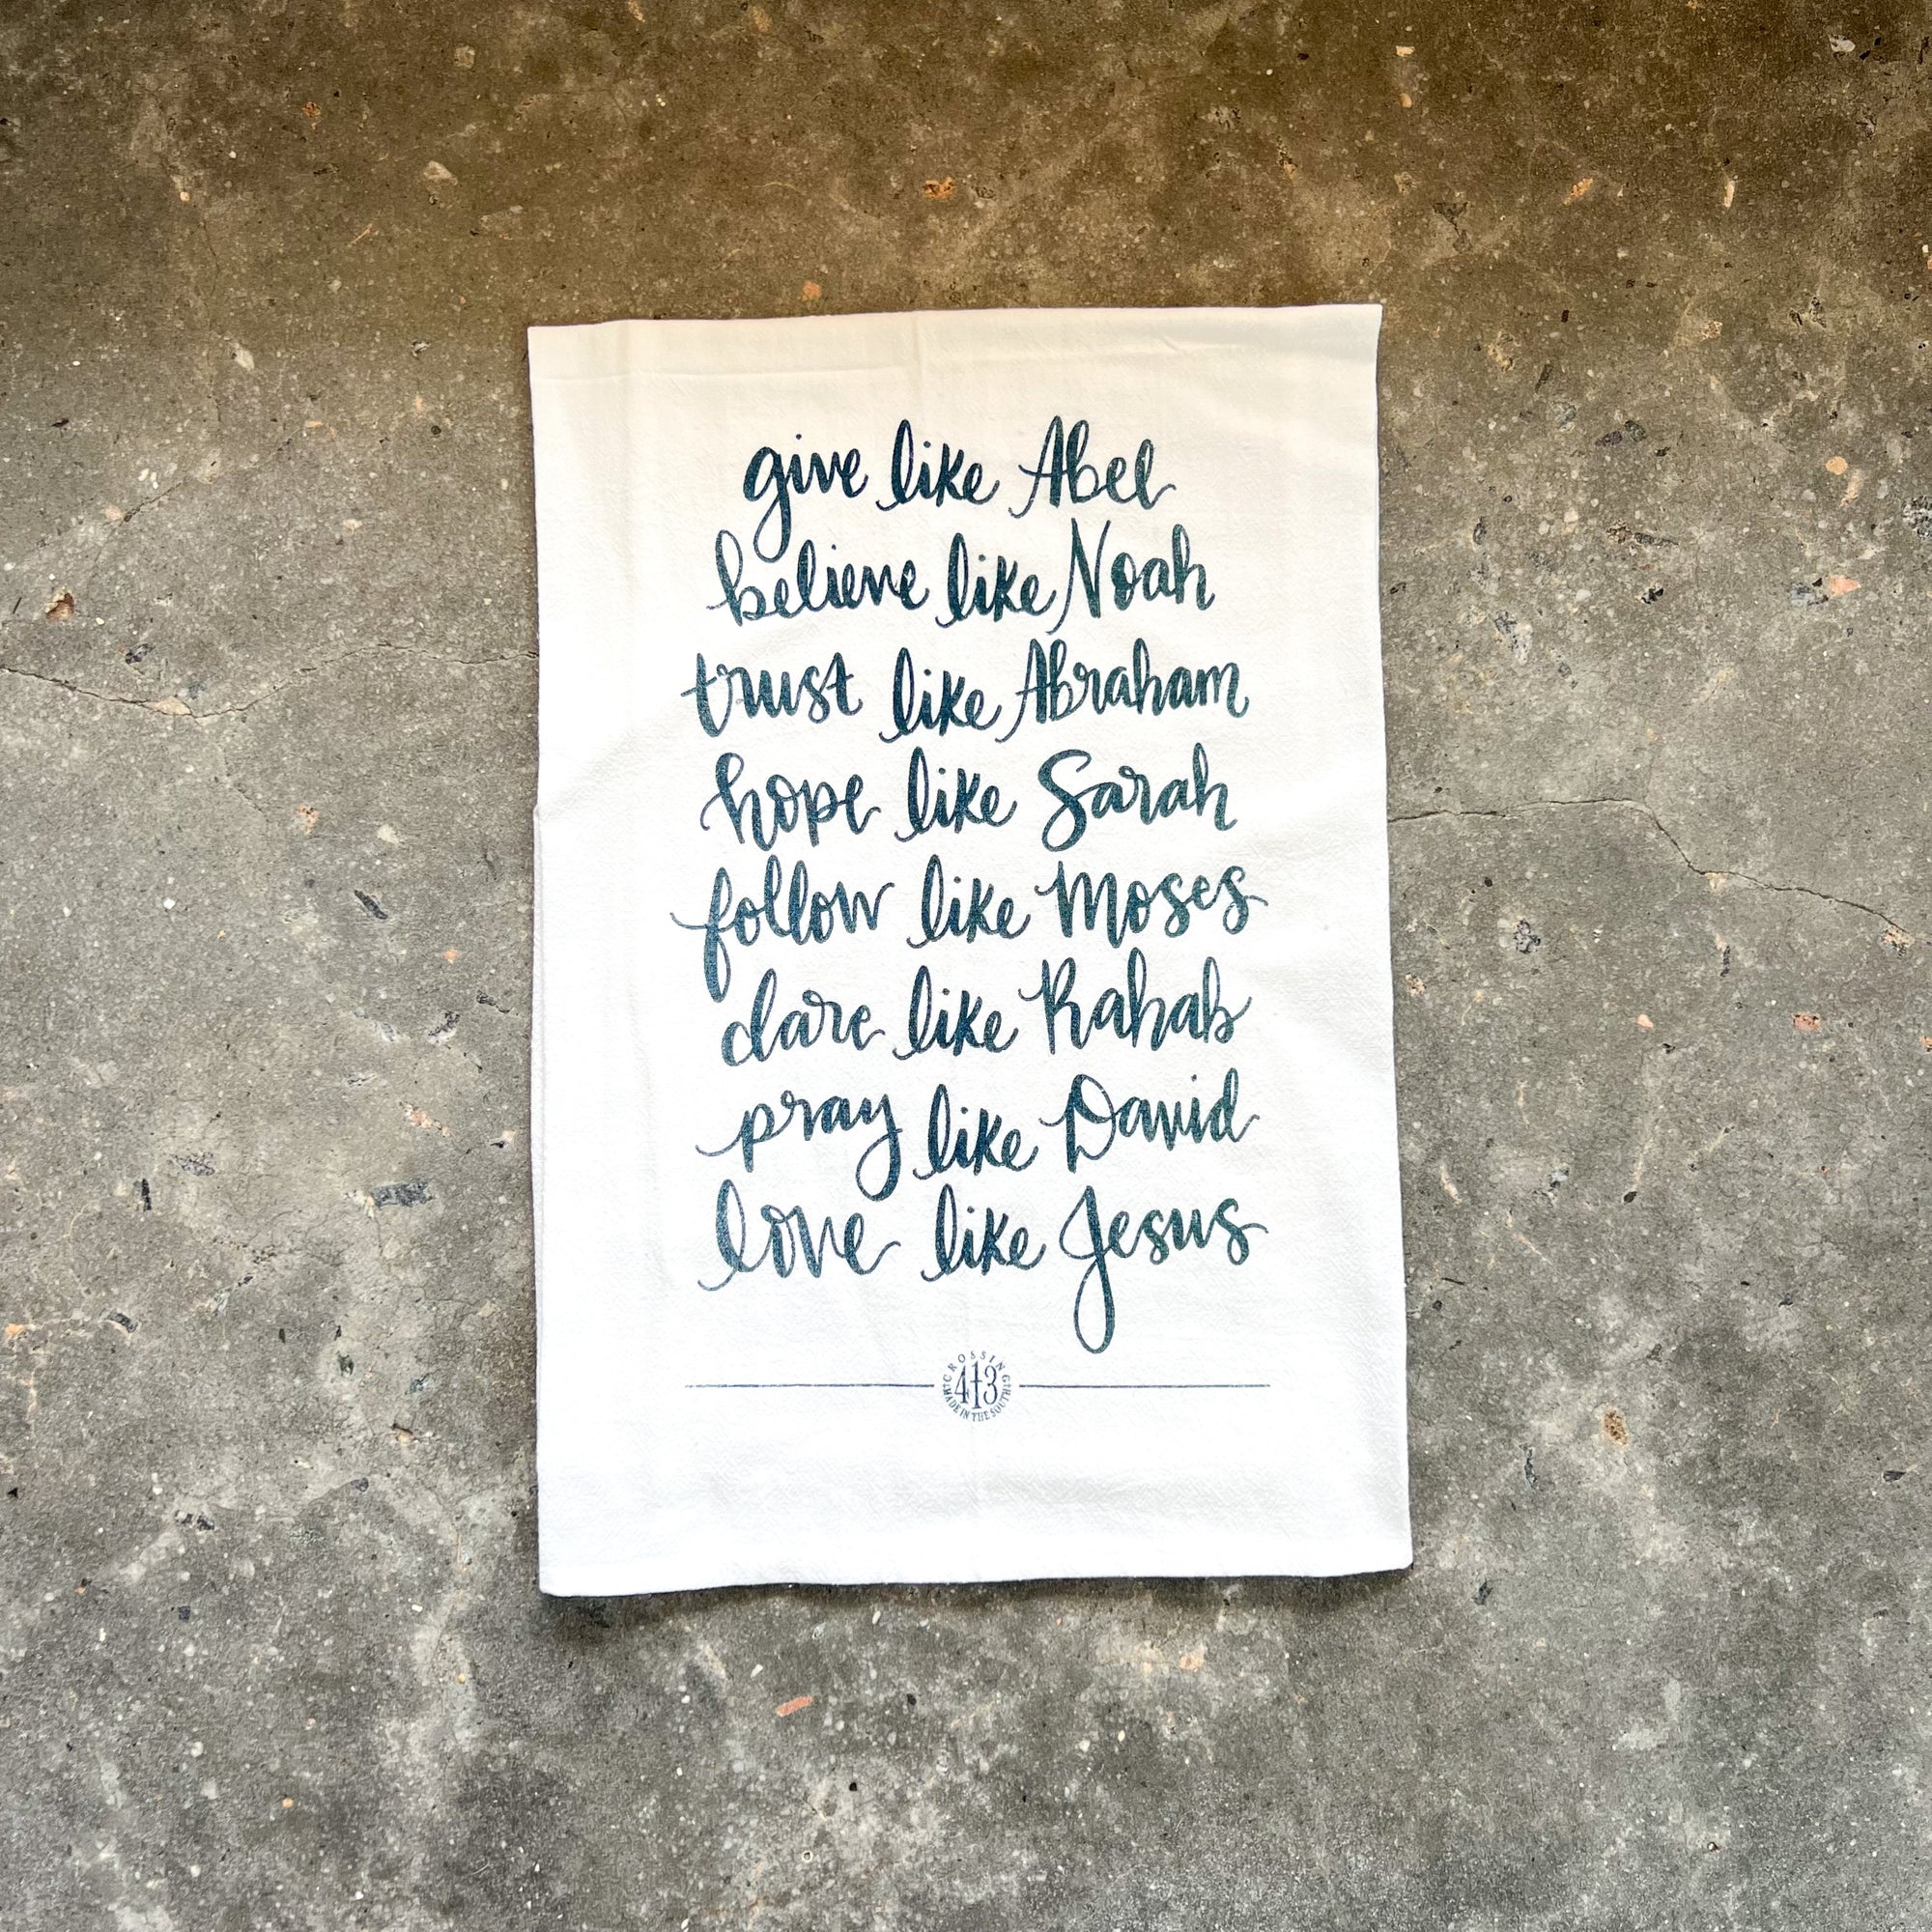 give like Abel
believe like Noah
trust like Abraham
hope like Sarah
follow like Moses
dare like Rahab
pray like David
love like Jesus
CROSSING
413
MADE IN THE SOUTH